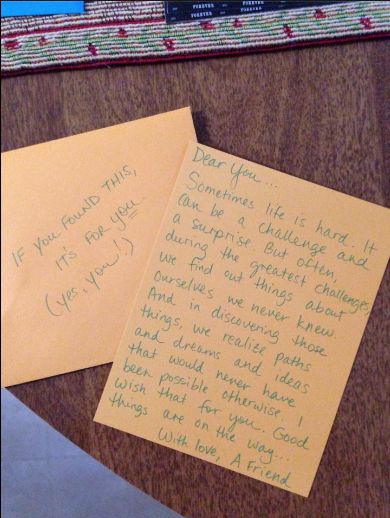 FOREVER FOREVER
FOREVER FOREVER
IF YOU FOUND THIS,
IT'S FOR YOU
(yes, you!)
Dear You...
Sometimes life is hard. It
can be a challenge and
a surprise. But often,
during the greatest challenges,
we find out things about
ourselves we never knew.
And in discovering those
things, we realize paths
and dreams and ideas
that would never have
been possible otherwise. I
wish that for you. Good
things are on the way...
With love, A Friend